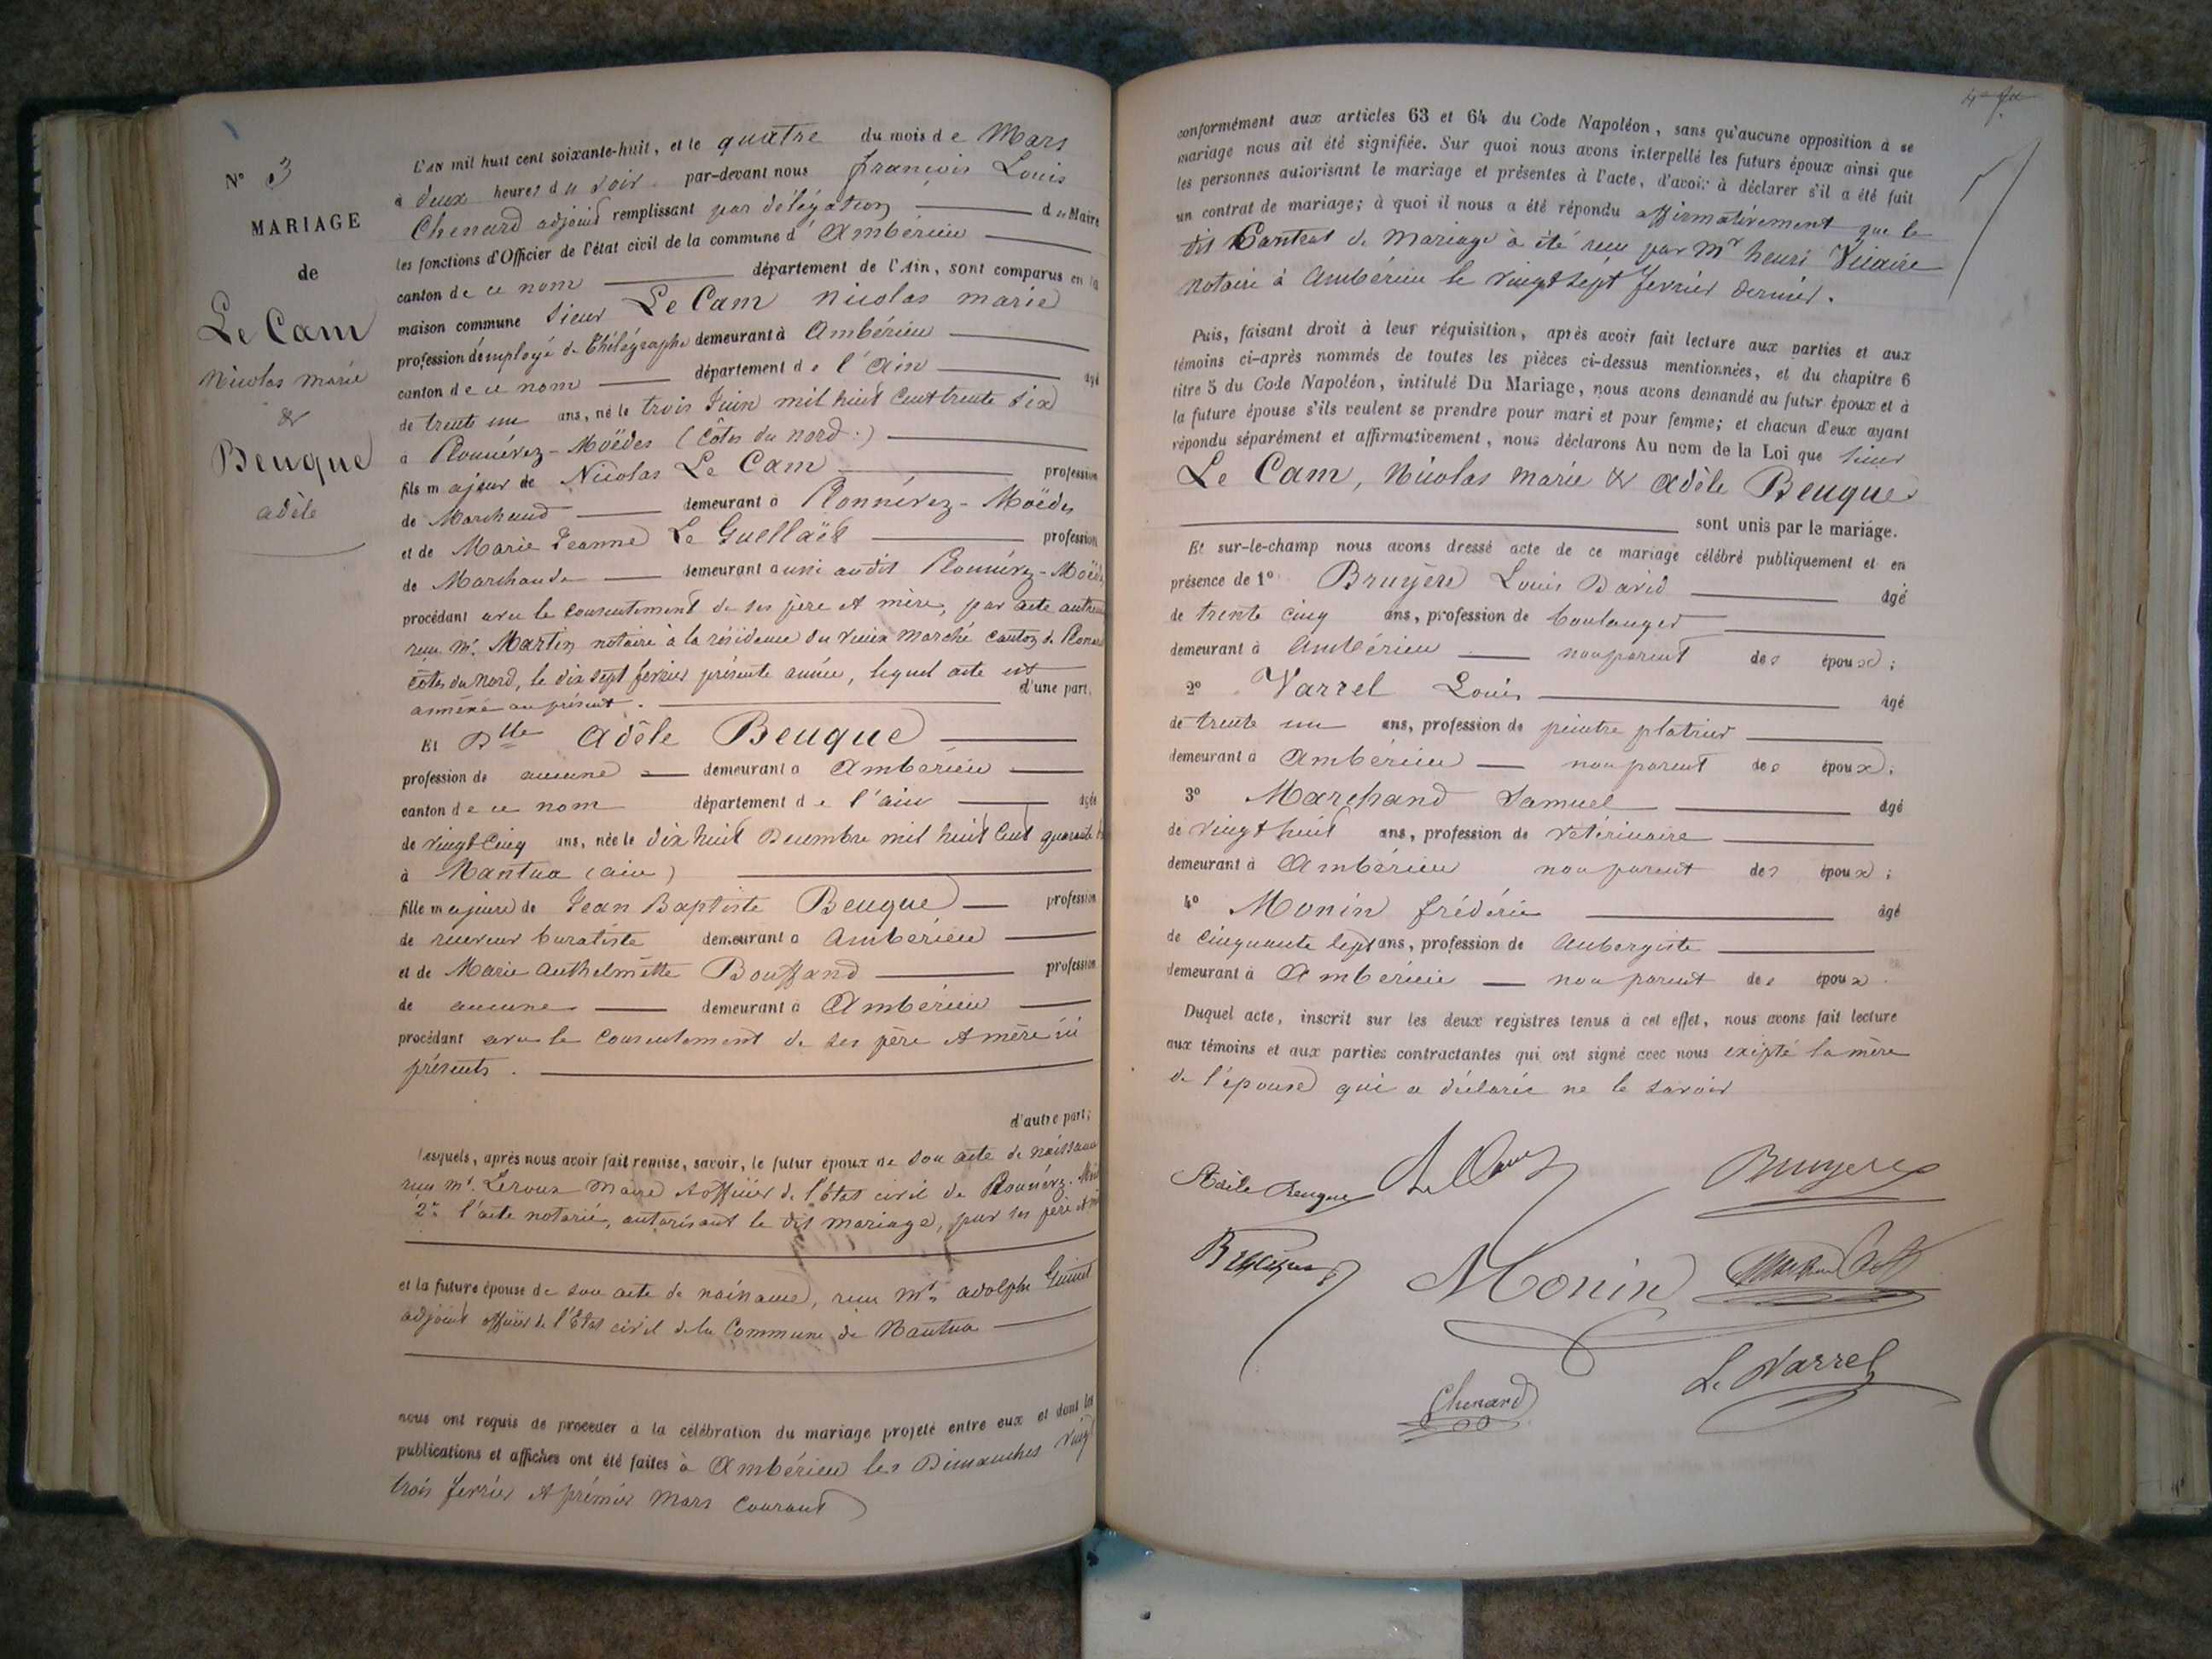 N° 3
MARIAGE
de
Le Cam
Nicolas marie
&
Beuque
adèle
L'an mil huit cent soixante-huit, et le quatre du mois de Mars
à deux heures du soir par-devant nous françois Louis
Chenard adjoint remplissant par délégation du Maire
les fonctions d'Officier de l'état civil de la commune d'Ambérieu
canton de ce nom département de l'Ain, sont comparus en la
maison commune Sieur Le Cam nicolas marie
profession d'employé de thélégraphe demeurant à Ambérieu
canton de ce nom département de l'Ain âgé
de trente un ans, né le trois Juin mil huit Cent trente six
à Plounévez-Moëdec (Côtes du nord.)
fils majeur de Nicolas Le Cam profession
de Marchand demeurant à Plounévez-Moëdec
et de Marie Jeanne Le Guellaët profession
de Marchande demeurant aussi audit Plounévez-Moëdec
procédant avec le consentement de ses père et mère, par acte
reçu Mr. Martin notaire à la résidence du vieux marché canton de
Côtes du Nord, le dix sept février présente année, lequel acte est
annexé au présent. d'une part.
Et Dlle Adèle Beuque
profession de aucune demeurant à Ambérieu
canton de ce nom département de l'ain âgée
de vingt cinq ans, née le dix huit Decembre mil huit Cent quarante
à Nantua (ain)
fille majeure de Jean Baptiste Beuque profession
de receveur buraliste demeurant à Ambérieu
et de Marie Anthelmette Bouffand profession
de aucune demeurant à Ambérieu
procédant avec le consentement de ses père et mère ici
présents.
d'autre part;
Lesquels, après nous avoir fait remise, savoir, le futur époux de son acte de naissance
reçu Mr. Leroux Maire et officier de l'état civil de Plounévez-
2° l'acte notarié, autorisant le dit mariage, par ses père et
et la future épouse de son acte de naissance, reçu Mr. adolphe
adjoint officier de l'état civil de la Commune de Nantua
nous ont requis de procéder à la célébration du mariage projeté entre eux et dont les
publications et affiches ont été faites à Ambérieu les Dimanches vingt
trois fevrier et premier Mars Courant
conformément aux articles 63 et 64 du Code Napoléon, sans qu'aucune opposition à se
mariage nous ait été signifiée. Sur quoi nous avons interpellé les futurs époux ainsi que
les personnes autorisant le mariage et présentes à l'acte, d'avoir à déclarer s'il a été fait
un contrat de mariage; à quoi il nous a été répondu affirmativement que le
dit Contrat de Mariage à été reçu par Mr henri Vicaire
notaire à Ambérieu le vingt sept fevrier dernier.
Puis, faisant droit à leur réquisition, après avoir fait lecture aux parties et aux
témoins ci-après nommés de toutes les pièces ci-dessus mentionnées, et du chapitre 6
titre 5 du Code Napoléon, intitulé Du Mariage, nous avons demandé au futur époux et à
la future épouse s'ils veulent se prendre pour mari et pour femme; et chacun d'eux ayant
répondu séparément et affirmativement, nous déclarons Au nom de la Loi que sieur
Le Cam, Nicolas Marie & Adèle Beuque
sont unis par le mariage.
Et sur-le-champ nous avons dressé acte de ce mariage célébré publiquement et en
présence de 1° Bruyère Louis David âgé
de trente cinq ans, profession de boulanger
demeurant à Ambérieu non parent des époux;
2° Varrel Louis âgé
de trente un ans, profession de peintre platrier
demeurant à Ambérieu non parent des époux;
3° Marchand Samuel âgé
de vingt huit ans, profession de vétérinaire
demeurant à Ambérieu non parent des époux;
4° Monin frédéric âgé
de cinquante sept ans, profession de Aubergiste
demeurant à Ambérieu non parent des époux
Duquel acte, inscrit sur les deux registres tenus à cet effet, nous avons fait lecture
aux témoins et aux parties contractantes qui ont signé avec nous exepté la mère
de l'épouse qui a déclarée ne le savoir
Adèle Beuque Le Cam Bruyere
Beuque Monin
Chenard L. Varrel